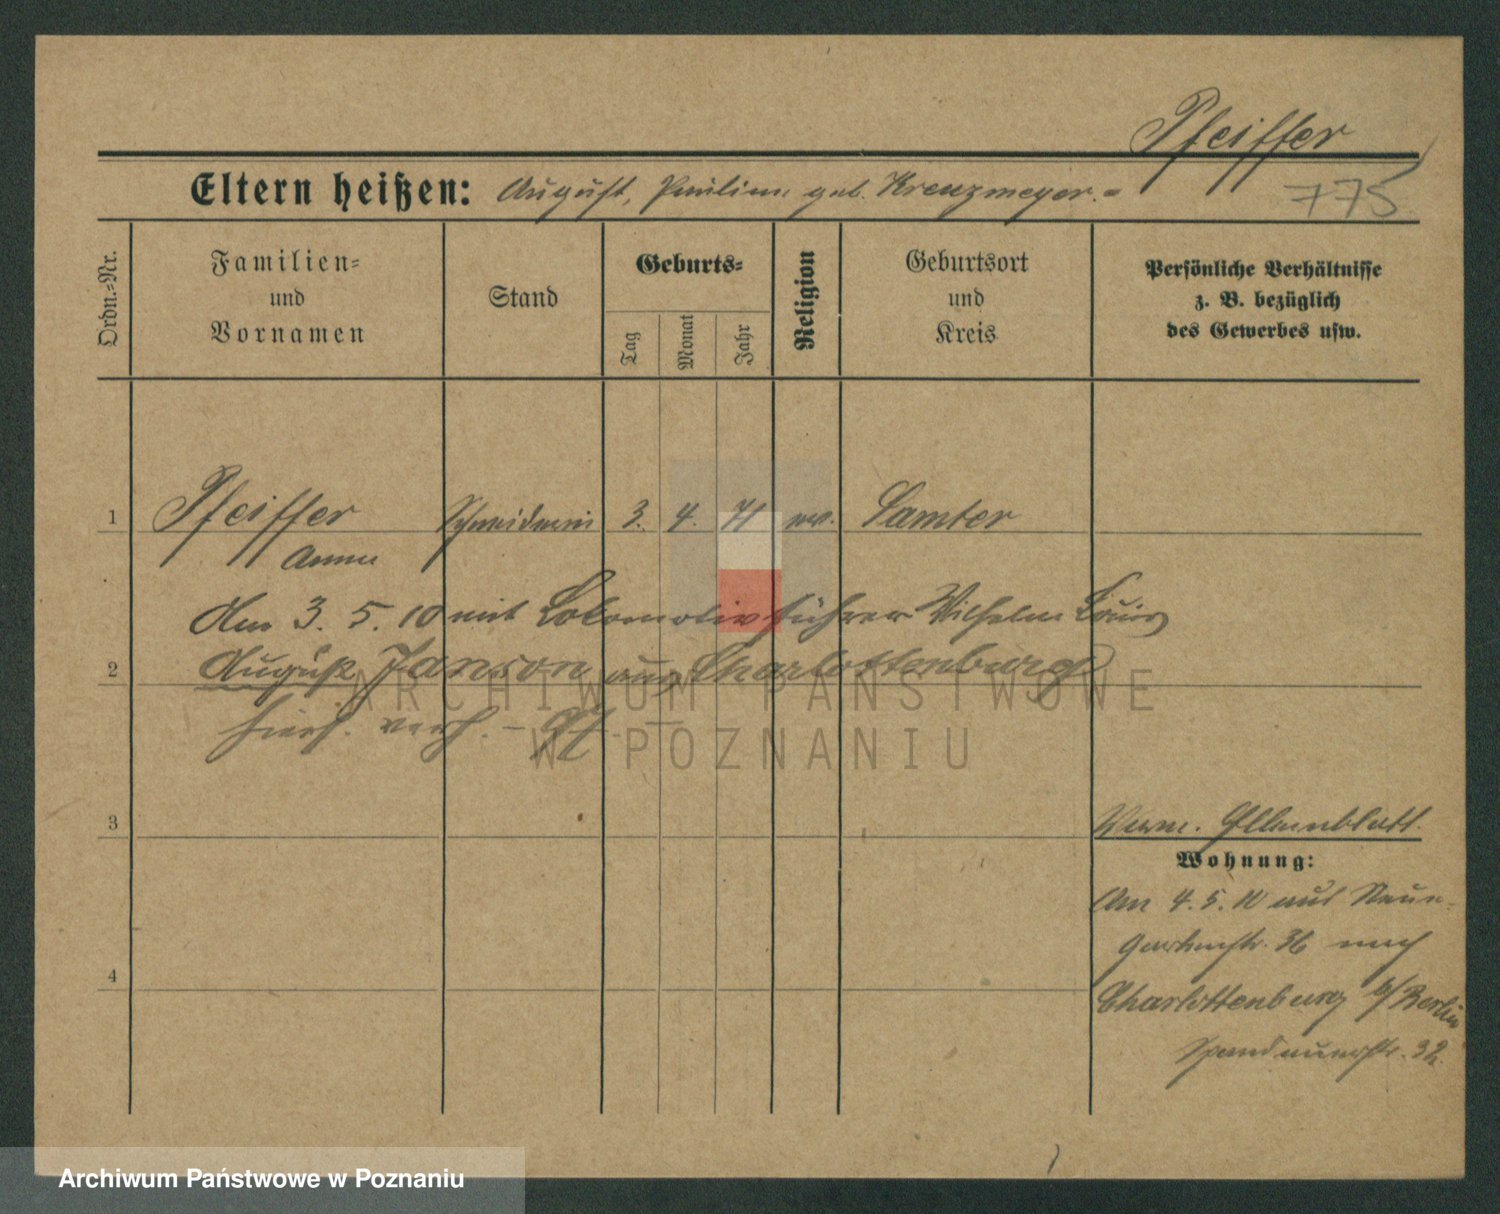 Pfeiffer
Eltern heißen: August, Pauline geb. Kreuzmeyer.=
775
Ordn.-Nr.
Familien=
und
Vornamen
Stand
Geburts=
Tag
Monat
Jahr
Religion
Geburtsort
und
Kreis
Persönliche Verhältnisse
z. B. bezüglich
des Gewerbes usw.
1
Pfeiffer
Schneiderin
3.
4.
71
ev.
Samter
Anna
Am 3. 5. 10 mit Lokomotivführer Wilhelm Louis
2
August Janson aus Charlottenburg
hies. verh. –
3
4
Wohnung:
Am 4. 5. 10 aus Neue-
Gartenstr. 36 nach
Charlottenburg b/Berlin
Spandauerstr. 32.
ARCHIWUM PAŃSTWOWE
W POZNANIU
Archiwum Państwowe w Poznaniu